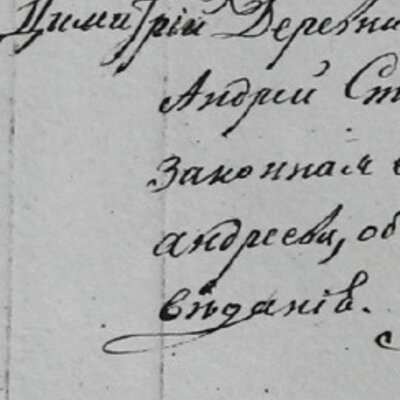 Димитрій Деревни
Андрей Ст
Законная е
андреева, об
вѣданів.